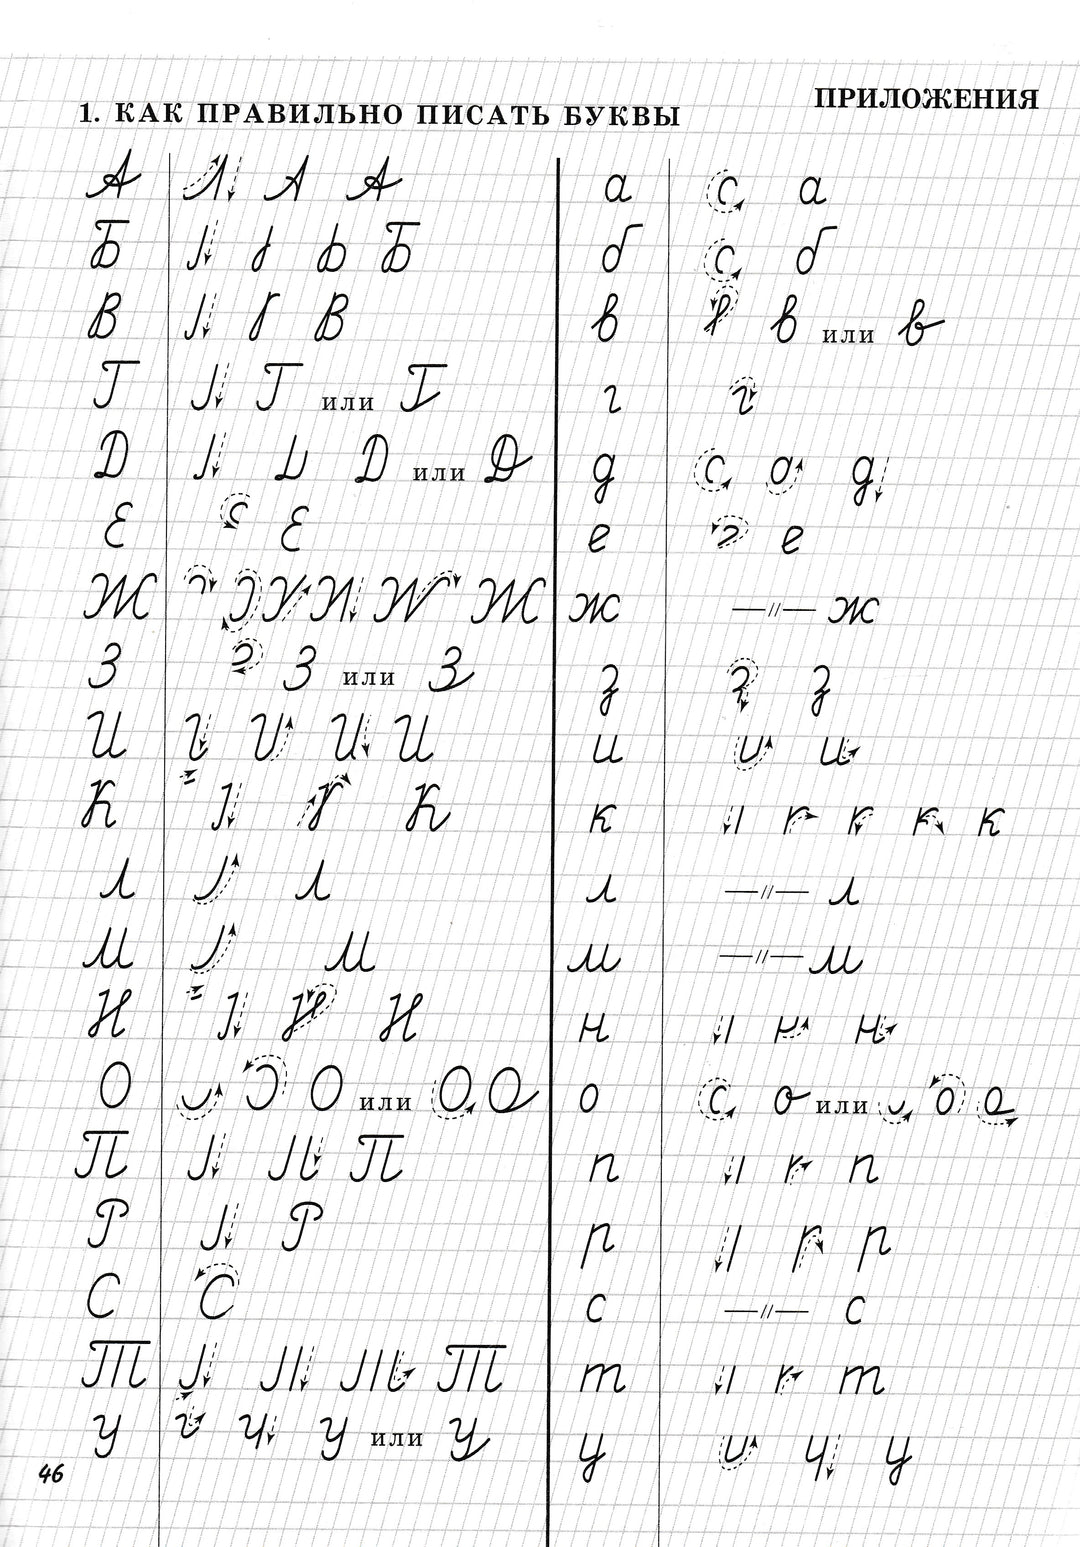 ПРИЛОЖЕНИЯ
1. КАК ПРАВИЛЬНО ПИСАТЬ БУКВЫ
А А А а а
Б Б б б
В В в в или в
Г Г или Г г г
Д Д или Д д д
Е Е е е
Ж Ж ж —//— ж
З З или З з з
И И и и
К К к к
Л Л л —//— л
М М м —//— м
Н Н н н
О О или О О о о или о о
П П п п
Р Р р р
С С с —//— с
Т Т т т
У У или У у у
46